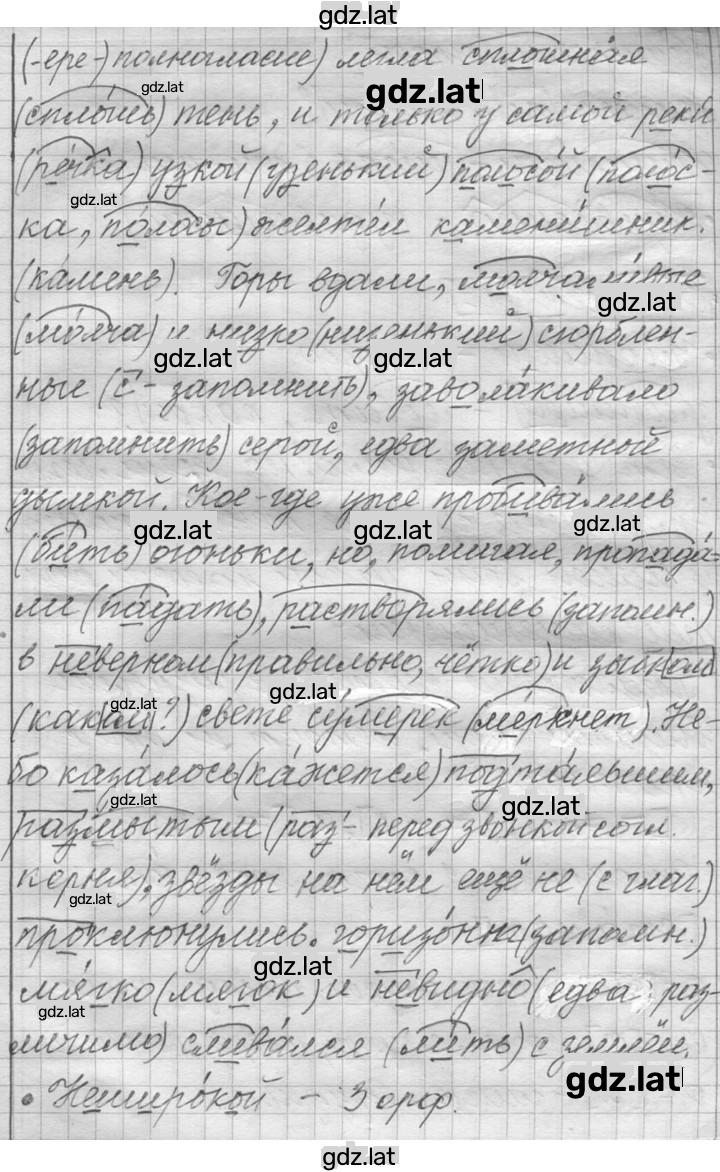 gdz.lat
(-ере-) полногласие) легла сплошная
gdz.lat
gdz.lat
(сплошь) тень, и только у самой реки
(речка) узкой (узенький) полосой (полос-
gdz.lat
ка, полосы) желтел каменишник.
(камень). Горы вдали, молчаливые
gdz.lat
(молча) и низко (низенький) сгорблен-
gdz.lat gdz.lat
ные (с- запомнить), заволакивало
(запомнить) серой, едва заметной
дымкой. Кое-где уже пробивались
gdz.lat gdz.lat gdz.lat
(бить) огоньки, но, помигая, пропада-
ли (падать), растворялись (запомн.)
в неверном (правильно, чётко) и зыбком
gdz.lat
gdz.lat
(каком?) свете сумерек (меркнет). Не-
бо казалось (кажется) подтаявшим,
gdz.lat
gdz.lat
размытым (раз- перед звонкой согл.
корня), звёзды на нём ещё не (с глаг.)
gdz.lat
проклюнулись. горизонт (запомн.)
gdz.lat
мягко (мягок) и невидно (едва раз-
gdz.lat
личимо) сливался (лить) с землёй.
gdz.lat
• Неширокой – 3 орф.
gdz.lat